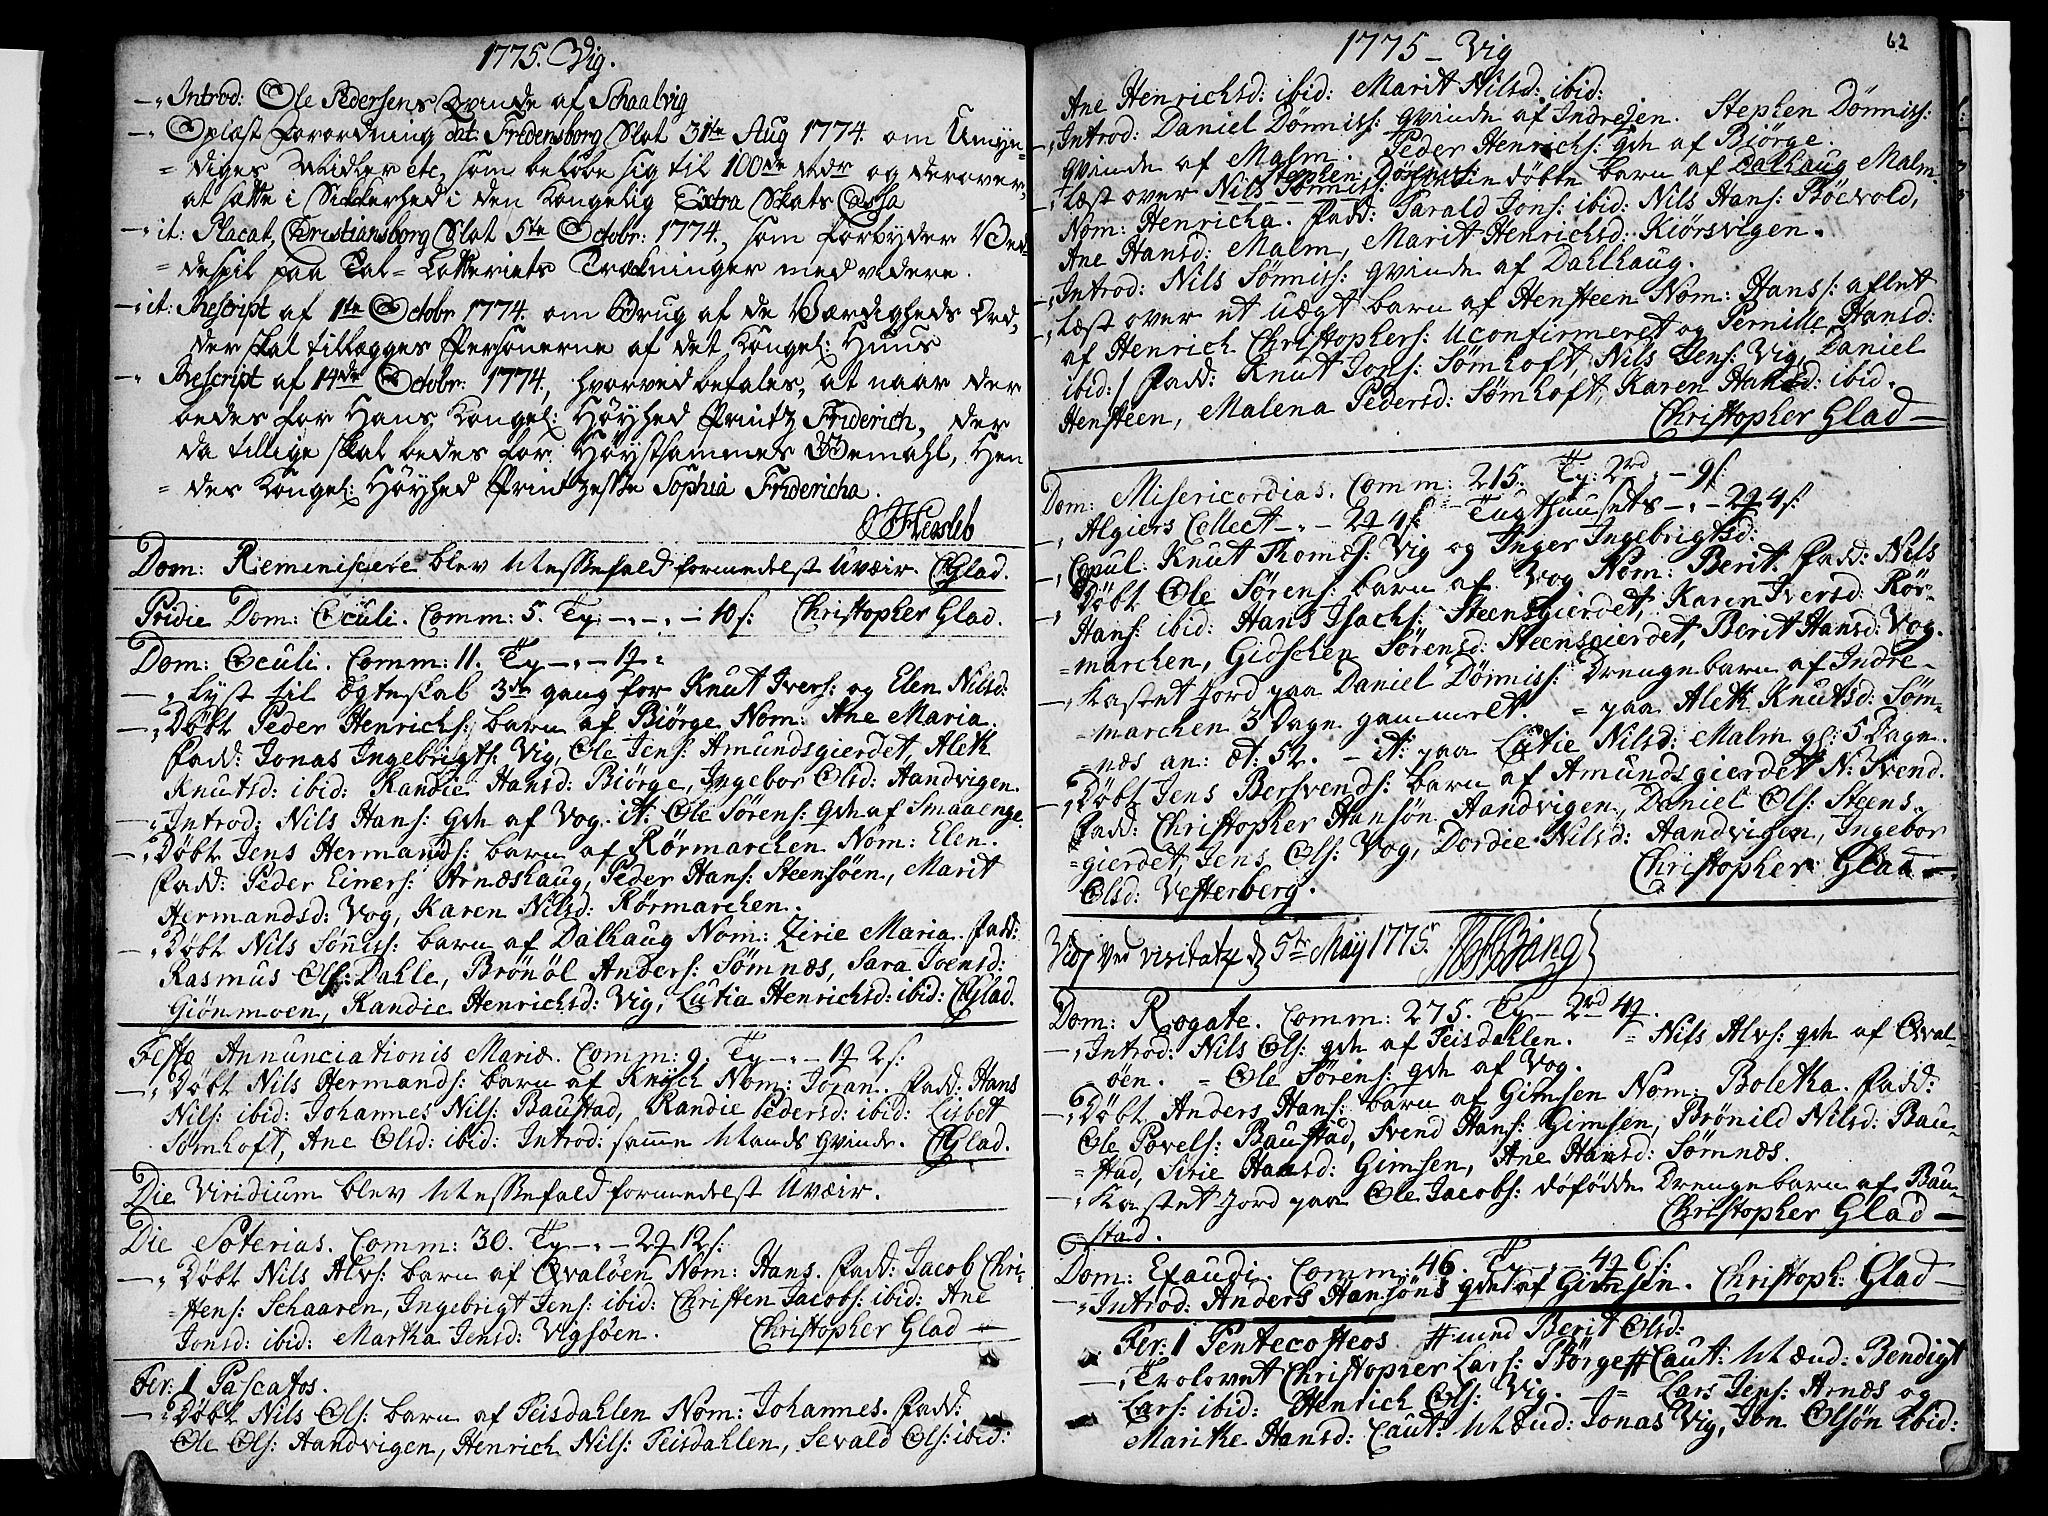 1775. Vig.
Introd: Ole Pedersens Qvinde af Schaalvig
Oplæst Forordning dat: Fredensborg Slot 31te Aug 1774. om Umyn=
=diges Midler etc, som beløbe sig til 100de rdr og derover,
at sætte i Sikkerhed i den Kongelig Extra Skats Cassa
it: Placat, Christiansborg Slot 5te Octobr: 1774., som forbyder Ved=
=despil paa Tal=Lotteriets Trækninger med videre.
it: Rescript af 1te Octobr 1774. om Brug af de Værdigheds Ord,
der skal tillægges Personerne af det Kongel: Huus
Rescript af 14de Octobr: 1774, hvorved befales, at naar der
bedes for Hans Kongel: Høyhed Printz Friderich, der
da tillige skal bedes for Høystsammes Gemahl, Hen
=des Kongel: Høyhed Printzesse Sophia Fridericha.
Hersleb
Dom: Reminiscere blev Messefald formedelst Uvæir. CGlad.
Pridie Dom: Oculi. Comm: 5. T: - - - 10 s: Christopher Glad.
Dom: Oculi. Comm: 11.
Lyst til Ægteskab 3de gang for Knut Ivers: og Elen Nilsd:
Døbt Peder Henrichs: barn af Biørge Nom: Ane Maria.
Fadd: Jonas Ingebrigts: Vig, Ole Jens: Amundsgierdet, Aleth
Knutsd: ibid: Randie Hansd: Biørge, Ingebor Olsd: Aandvigen.
Introd: Nils Hans: qvn af Vog. it: Ole Sørens: qvn af Smaaenge.
Døbt Jens Hermands: barn af Rørmarchen Nom: Elen.
Fadd: Peder Einers: Arnæshaug, Peder Hans: Steensøen, Marit
Hermandsd: Vog, Karen Nilsd: Rørmarchen.
Døbt Nils Sønnits: barn af Dalhaug Nom: Zirie Maria. Fadd:
Rasmus Ols: Dahle, Brønøl Anders: Sømnæs, Sara Joensd:
Giønmoen, Randie Henrichsd: Vig, Lutia Henrichsd: ibid: CGlad.
Festo Annunciationis Mariæ. Comm: 9.
Døbt Nils Hermands: barn af Knysch Nom: Joran. Fadd: Hans
Nils: ibid: Johannes Nils: Baustad, Randie Pedersd: ibid: Lisbet
Sømhoft, Ane Olsd: ibid: Introd: samme Mands qvinde. CGlad.
Die Viridium blev Messefald formedelst Uvæir.
Die Soterias. Comm: 30.
Døbt Nils Alvs: barn af Qvaløen Nom: Hans. Fadd: Jacob Chri-
=stens: Schaaren, Ingebrigt Jens: ibid: Christen Jacobs: ibid: Ane
Jonsd: ibid: Martha Jensd: Vigsøen. Christopher Glad
Fer: 1 Pascatos.
Døbt Nils Ols: barn af Feisdahlen Nom: Johannes. Fadd:
Ole Ols: Aandvigen, Henrich Nils: Feisdahlen, Sevald Ols: ibid:
1775 - Vig
62
Ane Henrichsd: ibid: Marit Nilsd: ibid:
Introd: Daniel Dønnits: qvinde af Indrejen. Stephen Dønnits:
qvinde af Malm. Peder Henrichs: qvn af Biørge.
Læst over Stephen Dønnits: døbte barn af Malm.
Nom: Henricha. Fadd: Harald Jons: ibid: Nils Hans: Bøevold,
Ane Hansd: Malm, Marit Henrichsd: Kiørsvigen.
Introd: Nils Sønnits: qvinde af Dalhaug.
Læst over et uægt barn af Hensteen Nom: Hans /: aflet
af Henrich Christophers: Uconfirmeret og Pernille Hansd:
ibid: / Fadd: Knut Jons: Sømhoft, Nils Jens: Vig, Daniel
Hensteen, Malena Pedersd: Sømhoft, Karen Hansd: ibid.
Christopher Glad
Dom: Misericordias. Comm: 215. T: 2rd - - 9 s:
Algiers Collect - - Tugthuusets - -
Copul: Knut Thomes: Vig og Inger Ingebrigtsd:
Døbt Ole Sørens: barn af Vog Nom: Berit. Fadd: Nils
Hans: ibid: Hans Isachs: Steensgierdet, Karen Iversd: Rør=
=marchen, Gidschen Sørensd: Steensgierdet, Berit Hansd: Vog.
Kastet Jord paa Daniel Dønnits: Drengebarn af Indre-
=marchen 3 Dage gammelt. = paa Aleth Knutsd: Søm-
=næs an: æt: 52. - it: paa Lutie Nilsd: Malm gl: 5 Dage.
Døbt Jens Bersvends: barn af Amundsgierdet N: Svend.
Fadd: Christopher Hansøn Aandvigen, Daniel Ols: Steens-
=gierdet, Jens Ols: Vog, Dordie Nilsd: Aandvigen, Ingebor
Olsd: Vesterberg. Christopher Glad
Vig ved visitatz d 5te May 1775. Bang
Dom: Rogate. Comm: 275.
Introd: Nils Ols: qvn af Feisdahlen. = Nils Alvs: qvn af Qval-
øen. = Ole Sørens: qvn af Vog.
Døbt Anders Hans: barn af Gimsen Nom: Boletha. Fadd:
Ole Povels: Baustad, Svend Hans: Gimsen, Brønild Nilsd: Bau=
=stad, Sirie Hansd: Gimsen, Ane Hansd: Sømnæs.
Kastet Jord paa Ole Jacobs: døfødde Drengebarn af Bau=
stad. Christopher Glad
Dom: Exaudi. Comm: 46.
Introd: Anders Hansøns qvn af Gimsen. Christoph: Glad
Fer: 1 Pentecosteos # med Berit Olsd:
Trolovet Christopher Lars: Børge # Caut: Mænd: Bendigt
Lars: ibid: Henrich Ols: Vig. - = Lars Jens: Arnæs og
Marithe Hansd: Caut: Mænd: Jonas Vig, Jon Olsøn ibid: